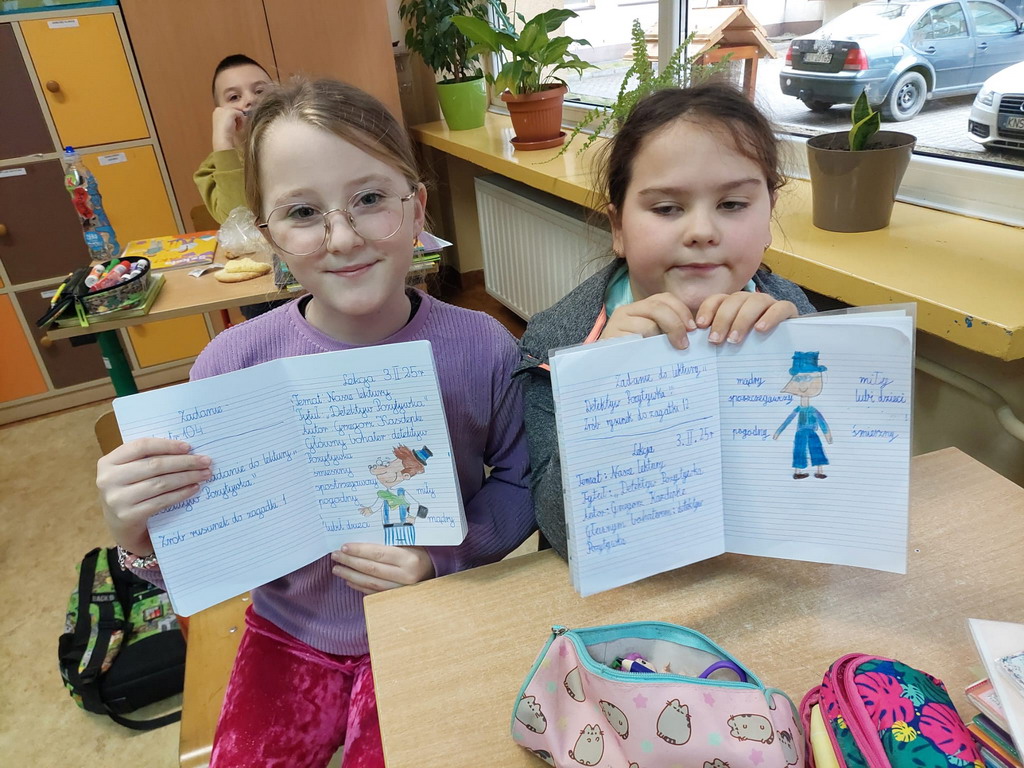 Zadanie
Zadanie do lektury „
Zrób rysunek do zagadki 1
Lekcja 3.II.25r
Temat: Nasze lektury
Tytuł: „Detektyw Pozytywka"
Autor: Grzegorz Kasdepke
Główny bohater: detektyw
Pozytywka
śmieszny
spostrzegawczy
pogodny
miły
lubi dzieci
mądry
Zadanie do lektury „
Detektyw Pozytywka
Zrób rysunek do zagadki 12
Lekcja 3.II.25r
Temat: Nasze lektury
Tytuł: „Detektyw Pozytywka
Autor: Grzegorz Kasdepke
Głównym bohaterem: detektyw
Pozytywka
mądry
spostrzegawczy
pogodny
miły
lubi dzieci
śmieszny
KNS